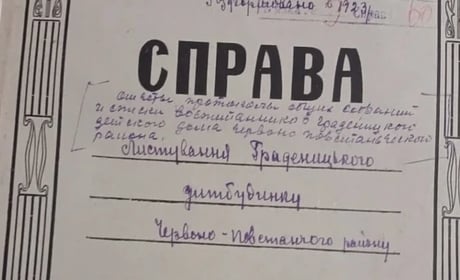 Розформовано в 1923 г. справ
СПРАВА
Отчеты, протоколы общих собраний
и списки воспитанников Граденицкого
детского дома Червоно повстанческого
района.
Листування Граденицького
дитбудинку
Червоно-Повстанчого району